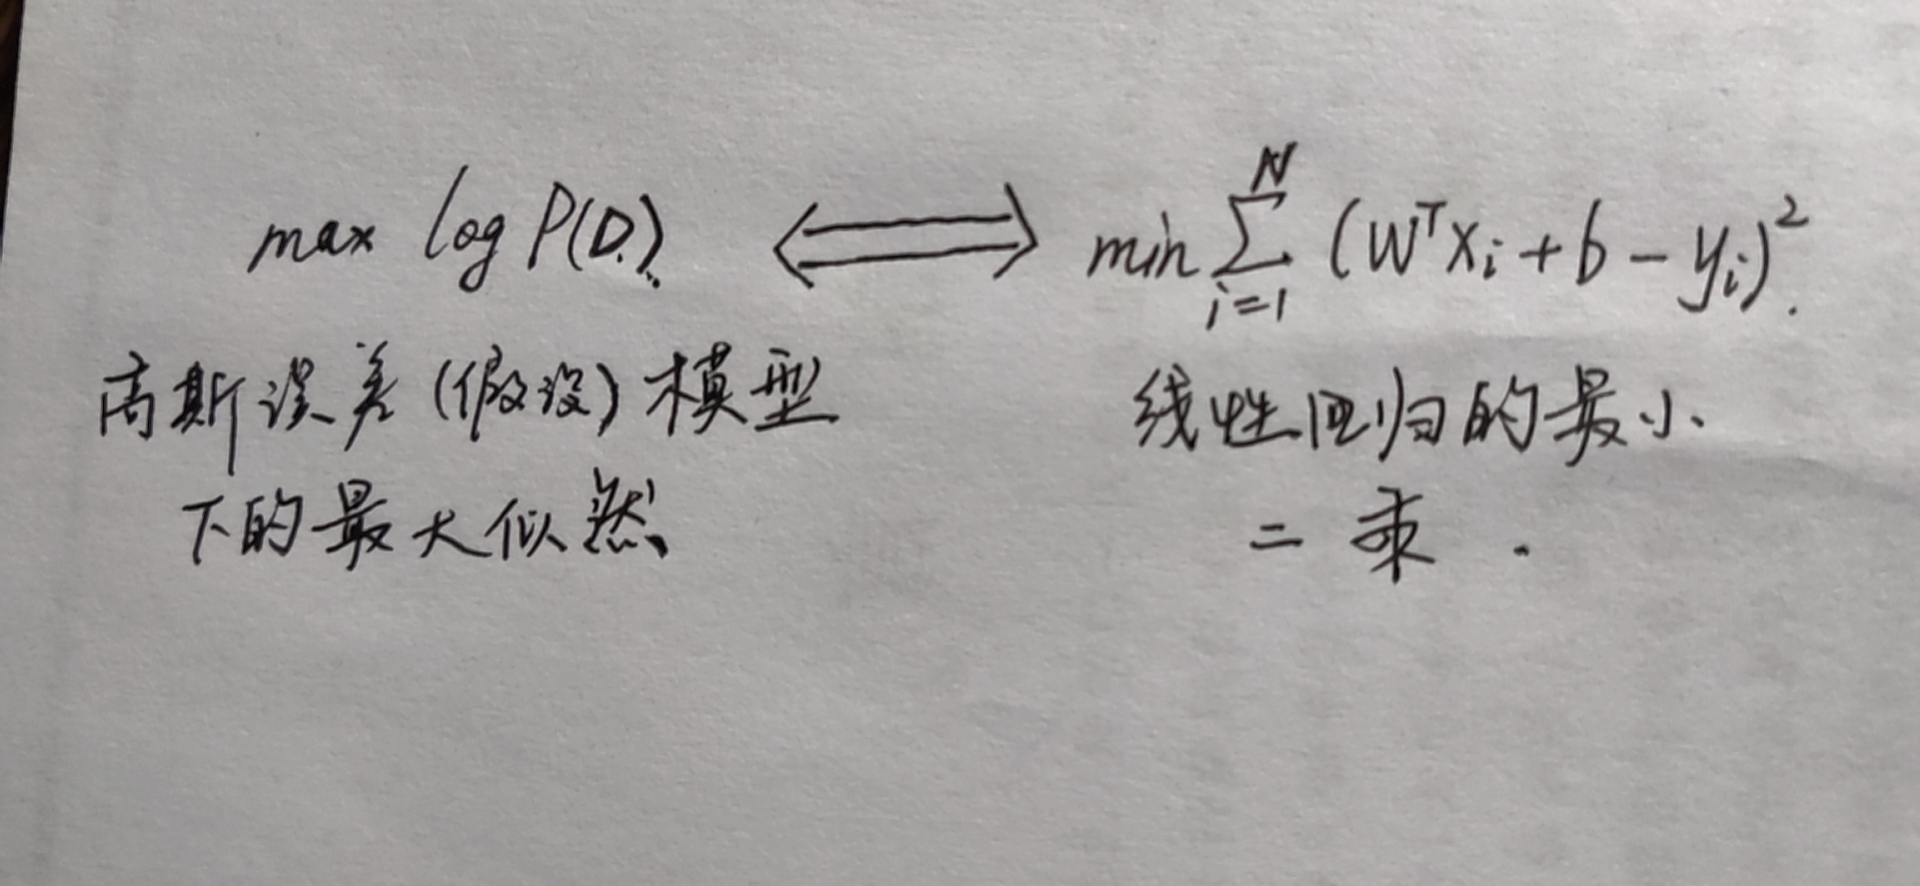 max log P(D) ⟺ min ∑_{i=1}^{N} (W^T x_i + b - y_i)^2.
高斯误差(假设)模型 线性回归的最小
下的最大似然 二乘.